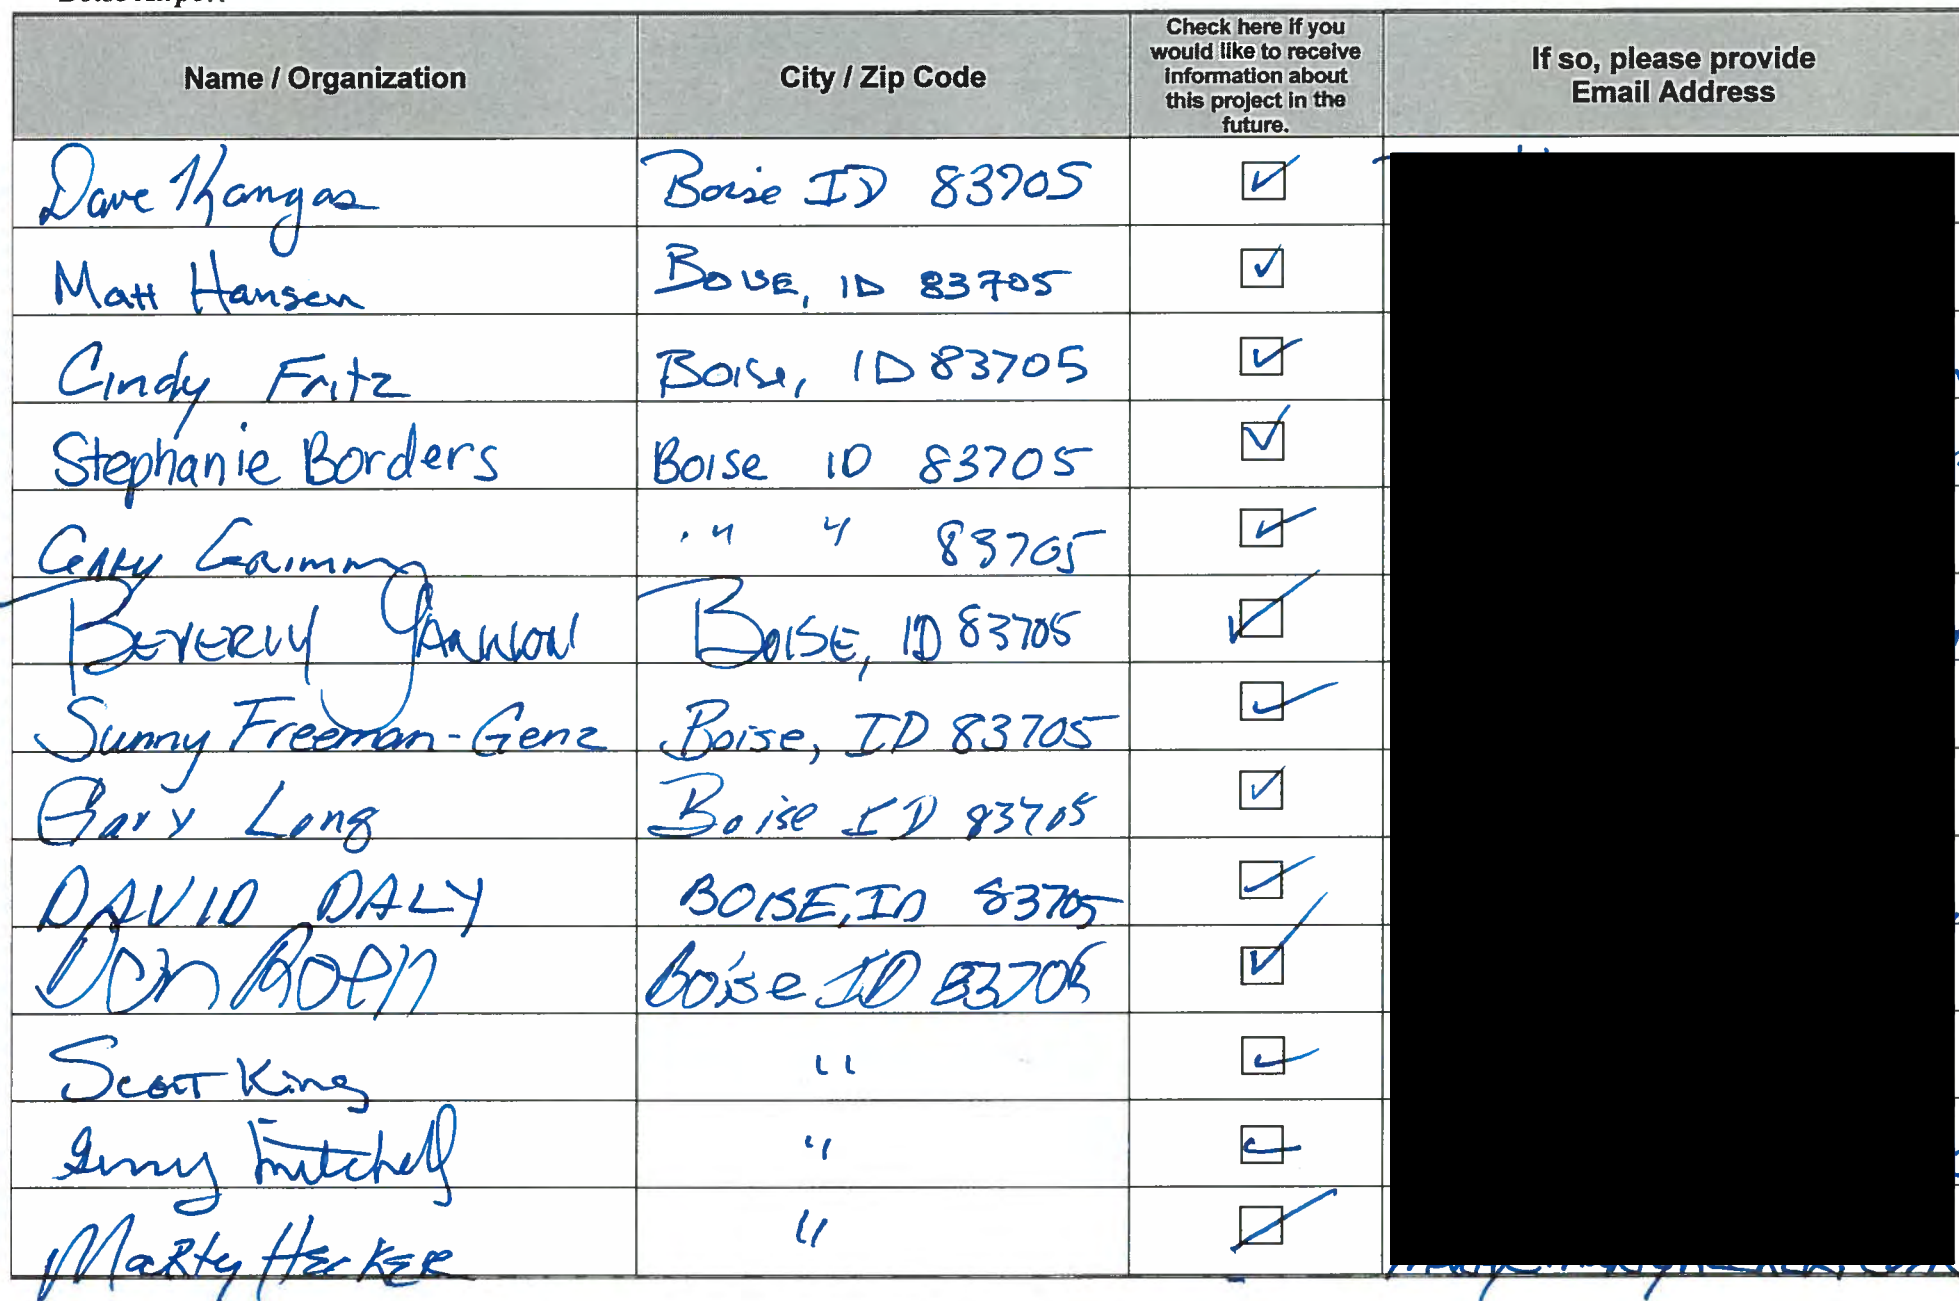 Name / Organization
City / Zip Code
Check here if you
would like to receive
information about
this project in the
future.
If so, please provide
Email Address
Dave Kangas Boise ID 83705
Matt Hansen Boise, ID 83705
Cindy Fritz Boise, ID 83705
Stephanie Borders Boise ID 83705
Gary Grimm " " 83705
BEVERLY BOISE, ID 83705
Sunny Freeman-Genz Boise, ID 83705
Gary Long Boise ID 83705
DAVID DALY BOISE, ID 83705
Don Boise ID 83705
Scott King "
Mitchell "
Marty Hecker "